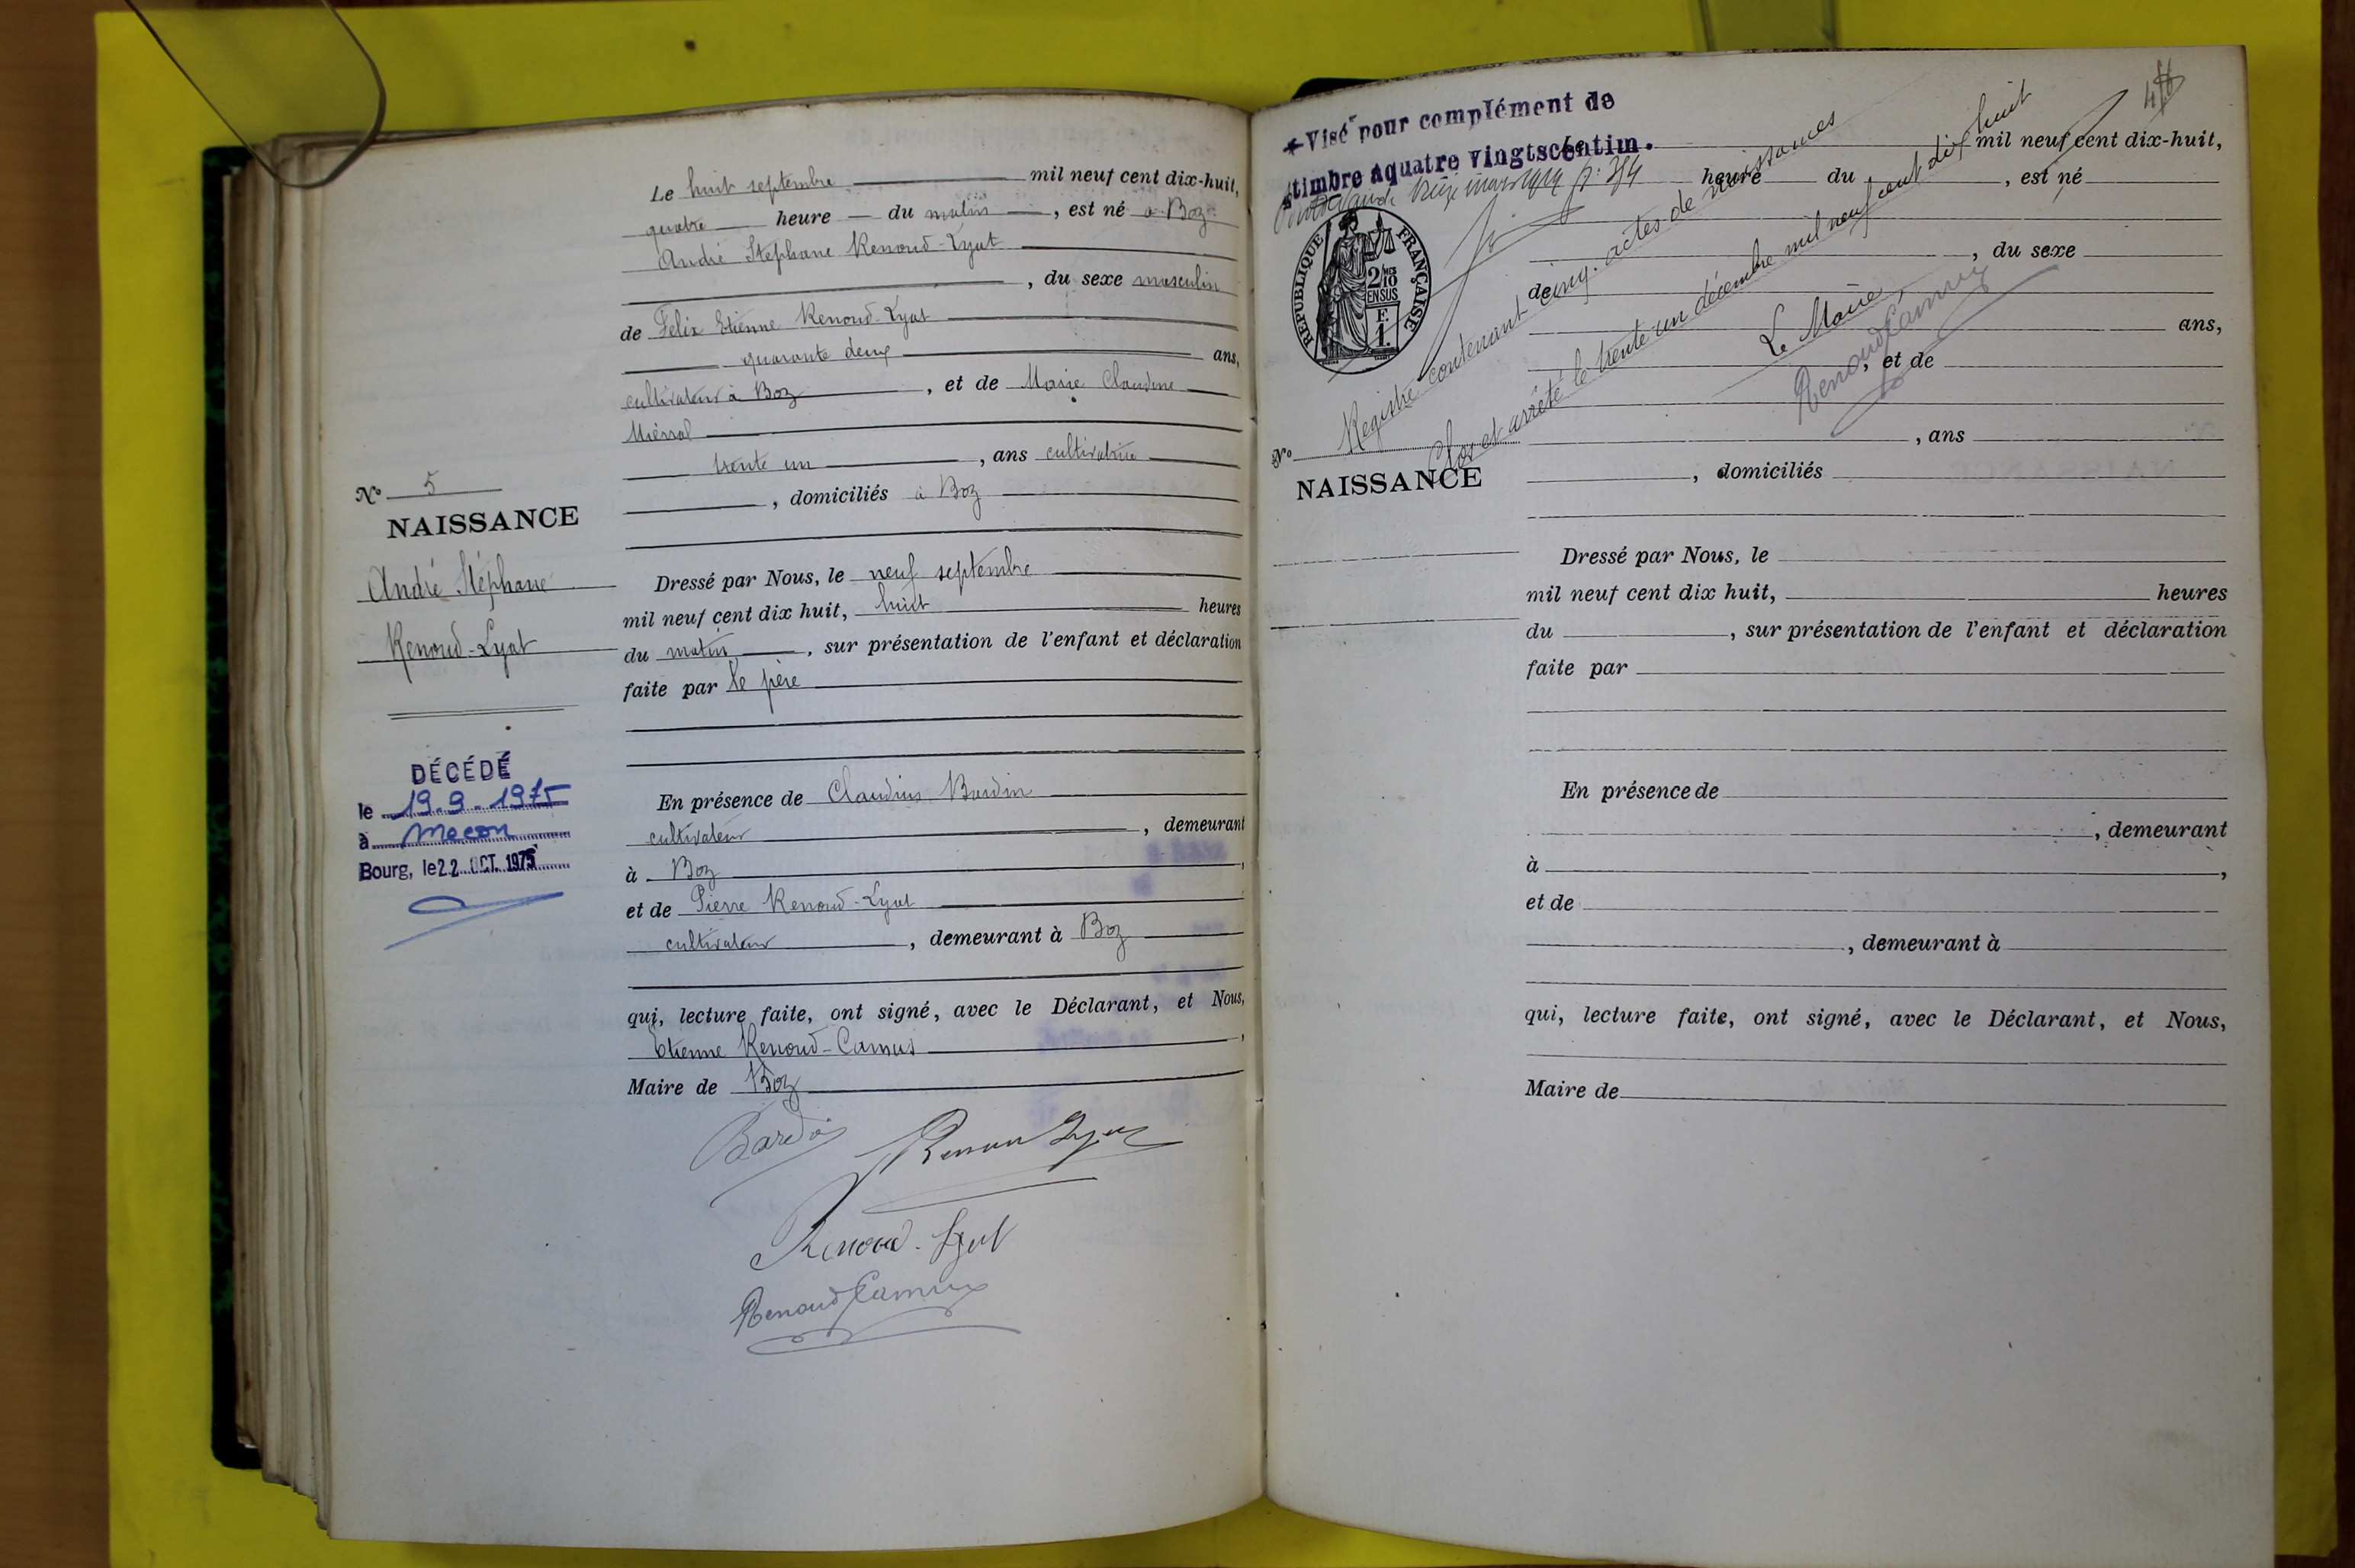 Le huit septembre mil neuf cent dix-huit,
quatre heure du matin, est né à Boz
André Stéphane Renoud-Lyat
, du sexe masculin
de Felix Etienne Renoud-Lyat
quarante deux ans,
cultivateur à Boz, et de Marie Claudine
trente un, ans cultivatrice
, domiciliés à Boz
N° 5
NAISSANCE
André Stéphane
Renoud-Lyat
DÉCÉDÉ
le 19.9.1975
à Macon
Bourg, le 22 OCT. 1975
Dressé par Nous, le neuf septembre
mil neuf cent dix huit, huit heures
du matin, sur présentation de l'enfant et déclaration
faite par le père
En présence de Claudius Bardin
cultivateur, demeurant
à Boz,
et de Pierre Renoud-Lyat
cultivateur, demeurant à Boz
qui, lecture faite, ont signé, avec le Déclarant, et Nous,
Etienne Renoud-Camus,
Maire de Boz
Bardin
Renoud-Lyat
Renoud Camus
Visé pour complément de
timbre à quatre vingts centim.
RÉPUBLIQUE FRANÇAISE
2/10
EN SUS
F.
1.
Registre contenant cinq actes de naissances
Clos et arrêté le trente un décembre mil neuf cent dix huit
Le Maire
Renoud Camus
mil neuf cent dix-huit,
heure du, est né
, du sexe
de
ans,
, et de
, ans
, domiciliés
N°
NAISSANCE
Dressé par Nous, le
mil neuf cent dix huit, heures
du, sur présentation de l'enfant et déclaration
faite par
En présence de
, demeurant
à,
et de
, demeurant à
qui, lecture faite, ont signé, avec le Déclarant, et Nous,
Maire de